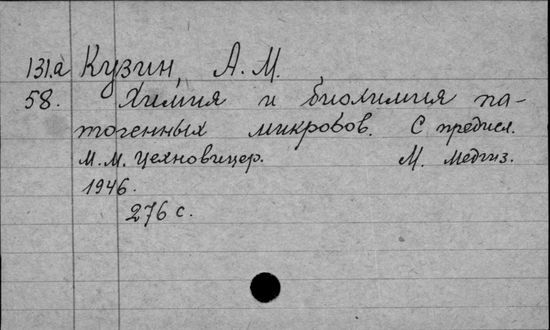 131.а Кузин, А. М.
58. Химия и биохимия па-
тогенных микробов. С предисл.
М.М. Цехновицер. М. Медгиз.
1946.
276 с.